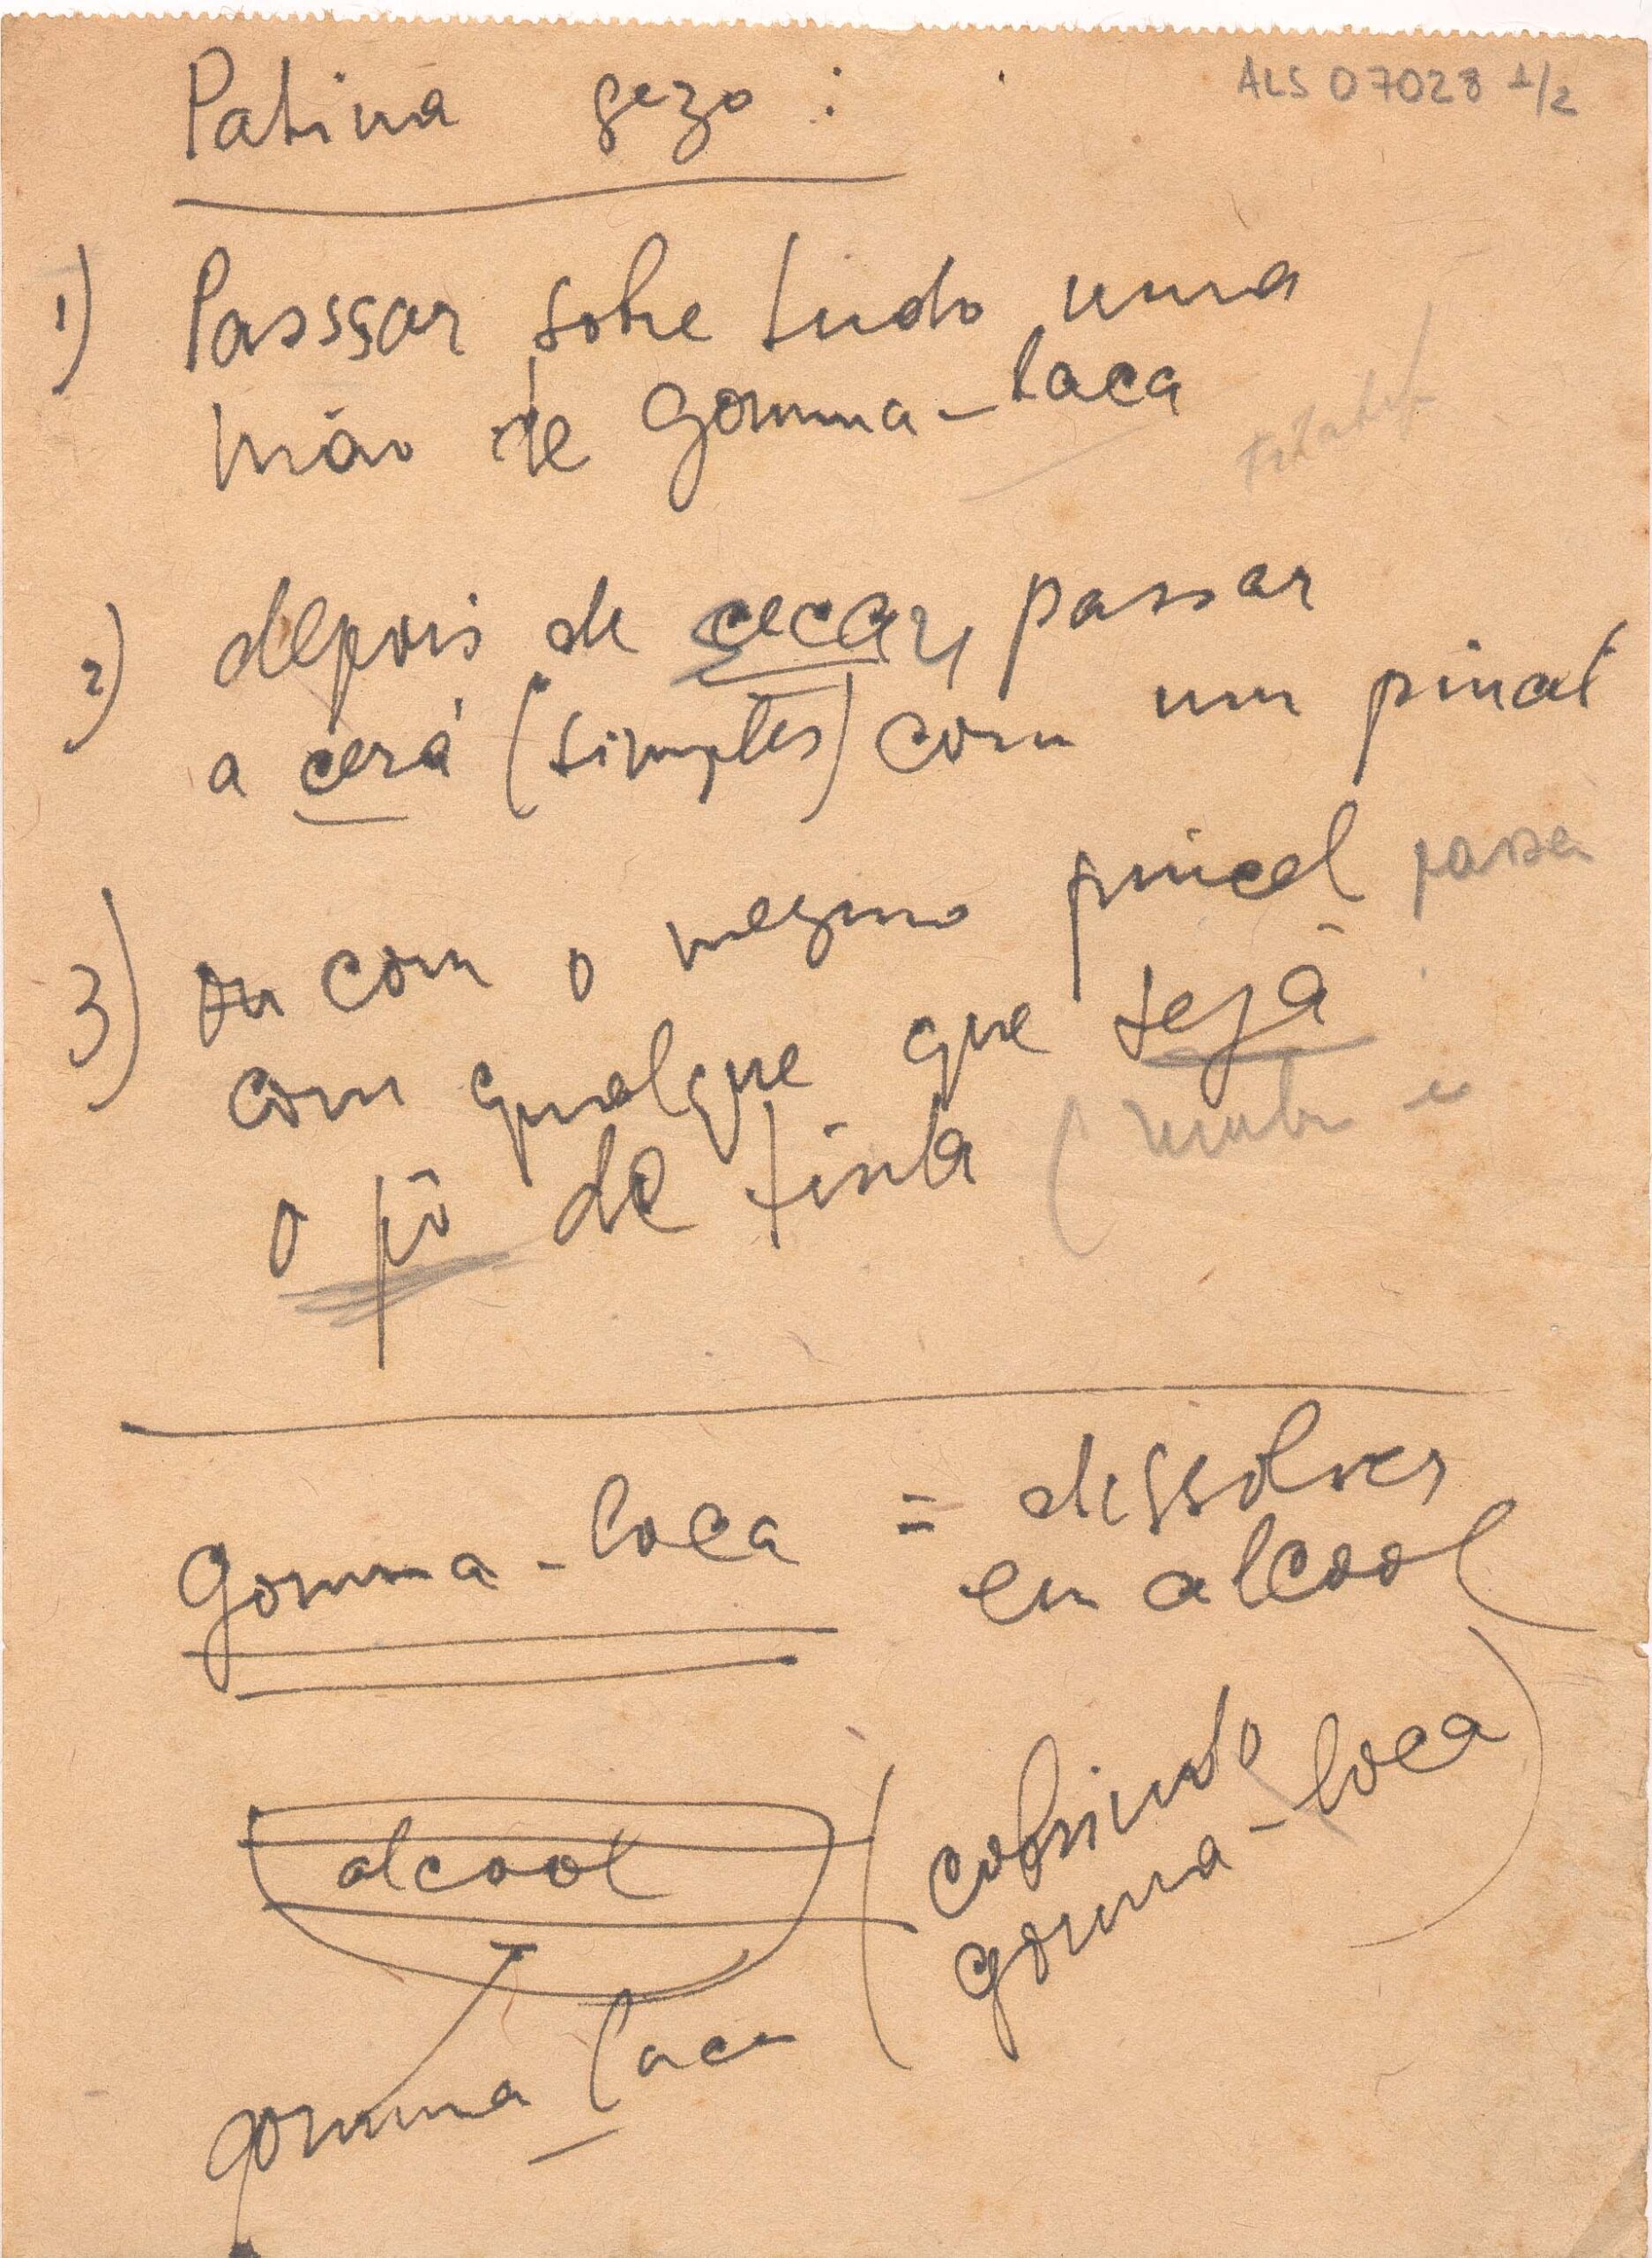 ALS 07028 1/2
Patina gezo :
1) Passsar sobre tudo uma
mão de Gomma-laca
2) depois de cecar, passar
a cera (simples) com um pincel
3) ou com o mezmo pincel passa
com qualque que seja
o pó de tinta (
Gomma-loca = dissolver
em alcool
alcool
(cobrindo
gomma-loca)
gomma laca